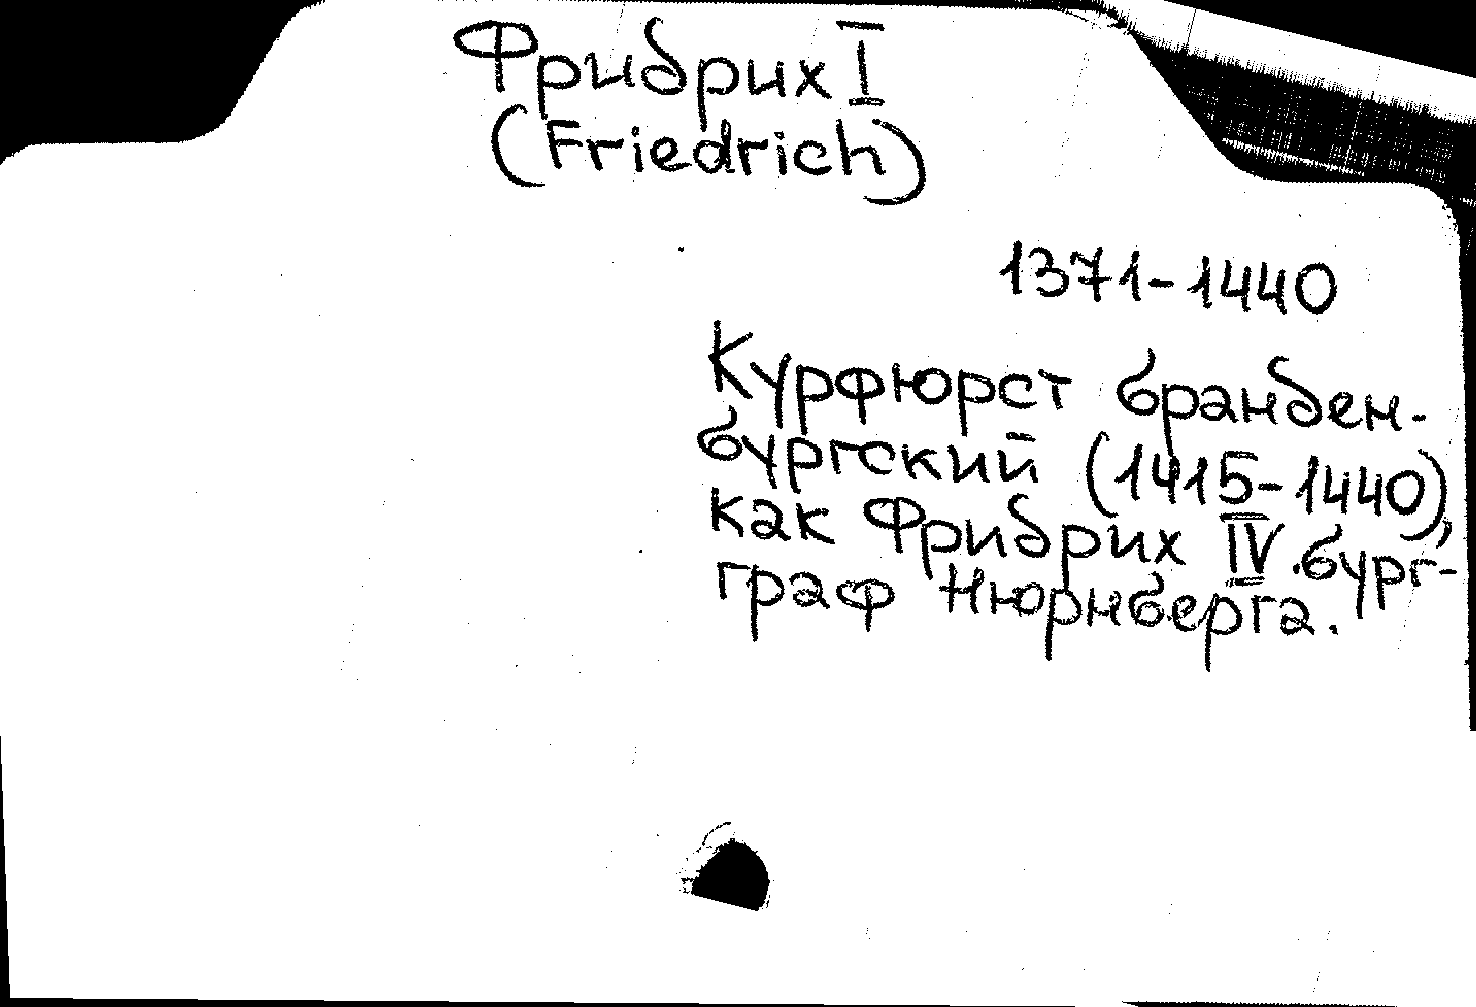 Фридрих I
(Friedrich)
1371-1440
Курфюрст бранден-
бургский (1415-1440),
как Фридрих IV.бург-
граф Нюрнберга.